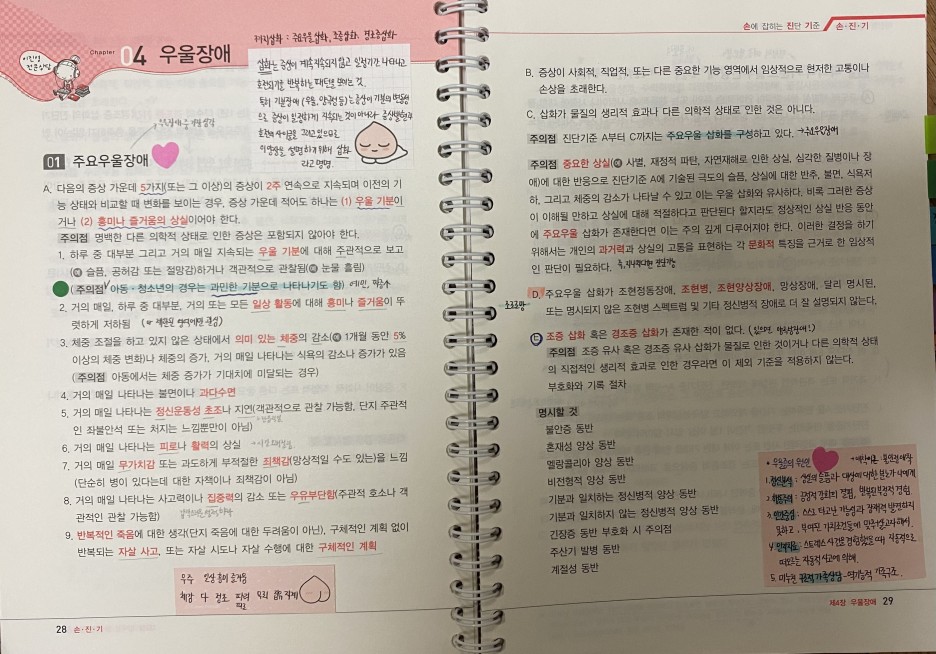 이진영 전문상담
Chapter 04 우울장애
3가지삽화 : 주요우울삽화, 조증삽화, 경조증삽화
01 주요우울장애
A. 다음의 증상 가운데 5가지(또는 그 이상)의 증상이 2주 연속으로 지속되며 이전의 기
능 상태와 비교할 때 변화를 보이는 경우, 증상 가운데 적어도 하나는 (1) 우울 기분이
거나 (2) 흥미나 즐거움의 상실이어야 한다.
주의점 명백한 다른 의학적 상태로 인한 증상은 포함되지 않아야 한다.
1. 하루 중 대부분 그리고 거의 매일 지속되는 우울 기분에 대해 주관적으로 보고
(예 슬픔, 공허감 또는 절망감)하거나 객관적으로 관찰됨(예 눈물 흘림)
(주의점 아동·청소년의 경우는 과민한 기분으로 나타나기도 함)
2. 거의 매일, 하루 중 대부분, 거의 또는 모든 일상 활동에 대해 흥미나 즐거움이 뚜
렷하게 저하됨
3. 체중 조절을 하고 있지 않은 상태에서 의미 있는 체중의 감소(예 1개월 동안 5%
이상의 체중 변화)나 체중의 증가, 거의 매일 나타나는 식욕의 감소나 증가가 있음
(주의점 아동에서는 체중 증가가 기대치에 미달되는 경우)
4. 거의 매일 나타나는 불면이나 과다수면
5. 거의 매일 나타나는 정신운동성 초조나 지연(객관적으로 관찰 가능함, 단지 주관적
인 좌불안석 또는 처지는 느낌뿐만이 아님)
6. 거의 매일 나타나는 피로나 활력의 상실
7. 거의 매일 무가치감 또는 과도하게 부적절한 죄책감(망상적일 수도 있는)을 느낌
(단순히 병이 있다는데 대한 자책이나 죄책감이 아님)
8. 거의 매일 나타나는 사고력이나 집중력의 감소 또는 우유부단함(주관적 호소나 객
관적인 관찰 가능함)
9. 반복적인 죽음에 대한 생각(단지 죽음에 대한 두려움이 아닌), 구체적인 계획 없이
반복되는 자살 사고, 또는 자살 시도나 자살 수행에 대한 구체적인 계획
28 손·진·기
손에 잡히는 진단 기준 손·진·기
B. 증상이 사회적, 직업적, 또는 다른 중요한 기능 영역에서 임상적으로 현저한 고통이나
손상을 초래한다.
C. 삽화가 물질의 생리적 효과나 다른 의학적 상태로 인한 것은 아니다.
주의점 진단기준 A부터 C까지는 주요우울 삽화를 구성하고 있다. →주요우울장애
주의점 중요한 상실(예 사별, 재정적 파탄, 자연재해로 인한 상실, 심각한 질병이나 장
애)에 대한 반응으로 진단기준 A에 기술된 극도의 슬픔, 상실에 대한 반추, 불면, 식욕저
하, 그리고 체중의 감소가 나타날 수 있고 이는 우울 삽화와 유사하다. 비록 그러한 증상
이 이해될 만하고 상실에 대해 적절하다고 판단된다 할지라도 정상적인 상실 반응 동안
에 주요우울 삽화가 존재한다면 이는 주의 깊게 다루어져야 한다. 이러한 결정을 하기
위해서는 개인의 과거력과 상실의 고통을 표현하는 각 문화적 특징을 근거로 한 임상적
인 판단이 필요하다.
D. 주요우울 삽화가 조현정동장애, 조현병, 조현양상장애, 망상장애, 달리 명시된,
또는 명시되지 않은 조현병 스펙트럼 및 기타 정신병적 장애로 더 잘 설명되지 않는다.
E. 조증 삽화 혹은 경조증 삽화가 존재한 적이 없다.
주의점 조증 유사 혹은 경조증 유사 삽화가 물질로 인한 것이거나 다른 의학적 상태
의 직접적인 생리적 효과로 인한 경우라면 이 제외 기준을 적용하지 않는다.
부호화와 기록 절차
명시할 것
불안증 동반
혼재성 양상 동반
멜랑콜리아 양상 동반
비전형적 양상 동반
기분과 일치하는 정신병적 양상 동반
기분과 일치하지 않는 정신병적 양상 동반
긴장증 동반 부호화 시 주의점
주산기 발병 동반
계절성 동반
제4장 우울장애 29